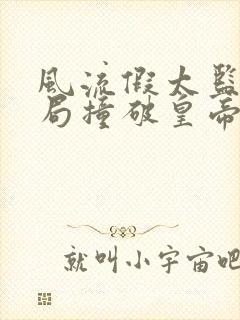 風流假太監
局撞破皇帝
就叫小宇宙吧